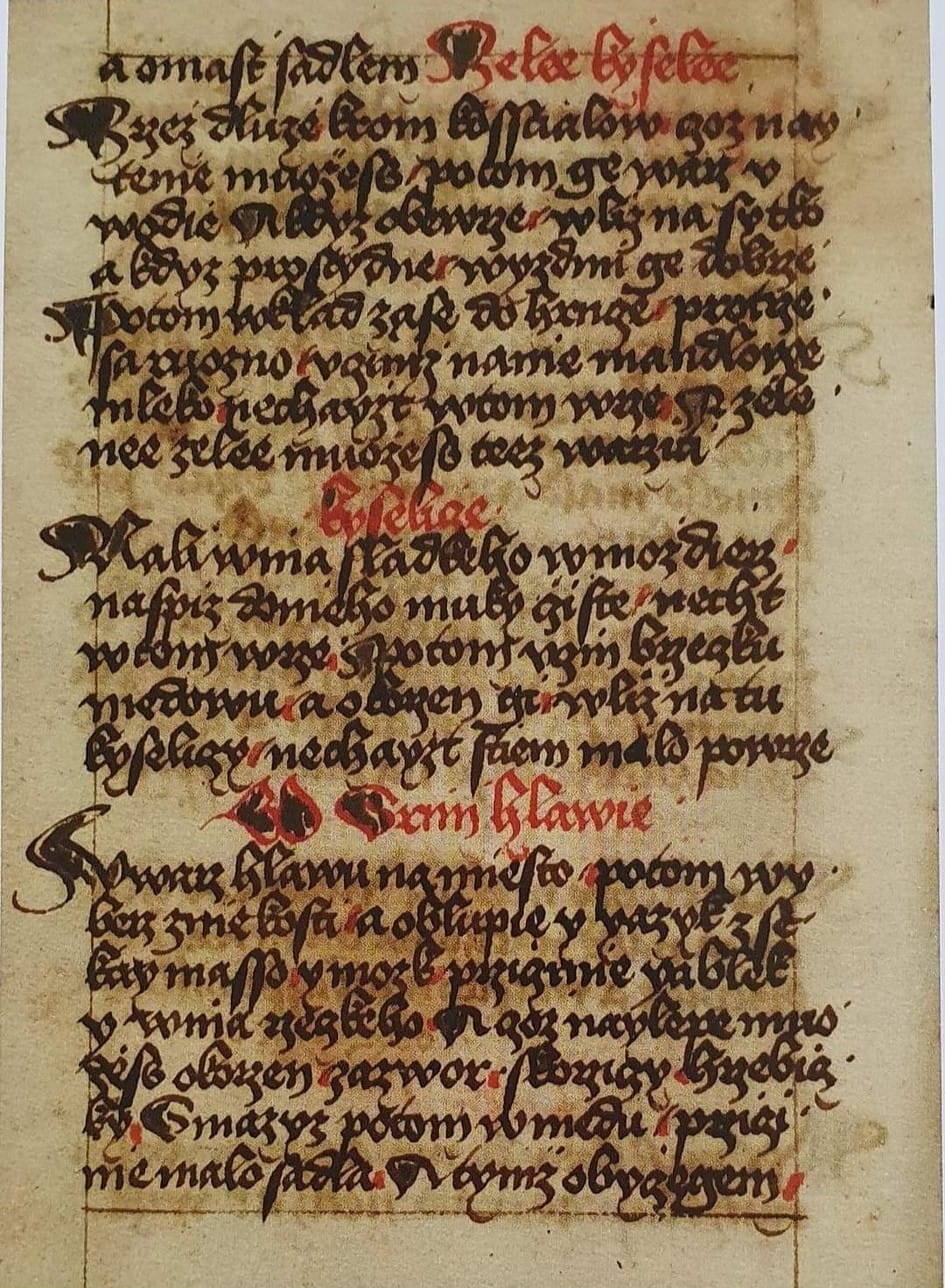 a omast sadlem Zelee kyselee
Brzez dluze krom kossczialow czoz nay
tenie muozess potom ge warz v
wodie A kdyz obewrze wliz na sytko
a kdyz prostydne wyzdmi ge dobrze
A potom wklad zase do hrncze protrze
sa ruozno vcziniz nanie mandlowe
mleko nechayzt wtom wrze A zele
nee zelee muozess teez warziti
kyselicze
Nali wina sladkeho w mozdierz
naspiz doneho muky cziste necht
wtom wrze A potom wzin brzeczku
medowu a okorzen gi wliz na tu
kyseliczy nechayzt stiem malo powrze
O Srnij hlawie
Swarz hlawu na miesto potom wy
berz znie kosti a oblupie y yazyk zse
kay masso y mozk przigmie yablek
y wina rzeczkeho A czoz naylepe muo
zess okorzen zazworr skorziczy hrzebicz
ky Smazyz potom wmedu przigi
nie malo sadla A tymz obyczegem